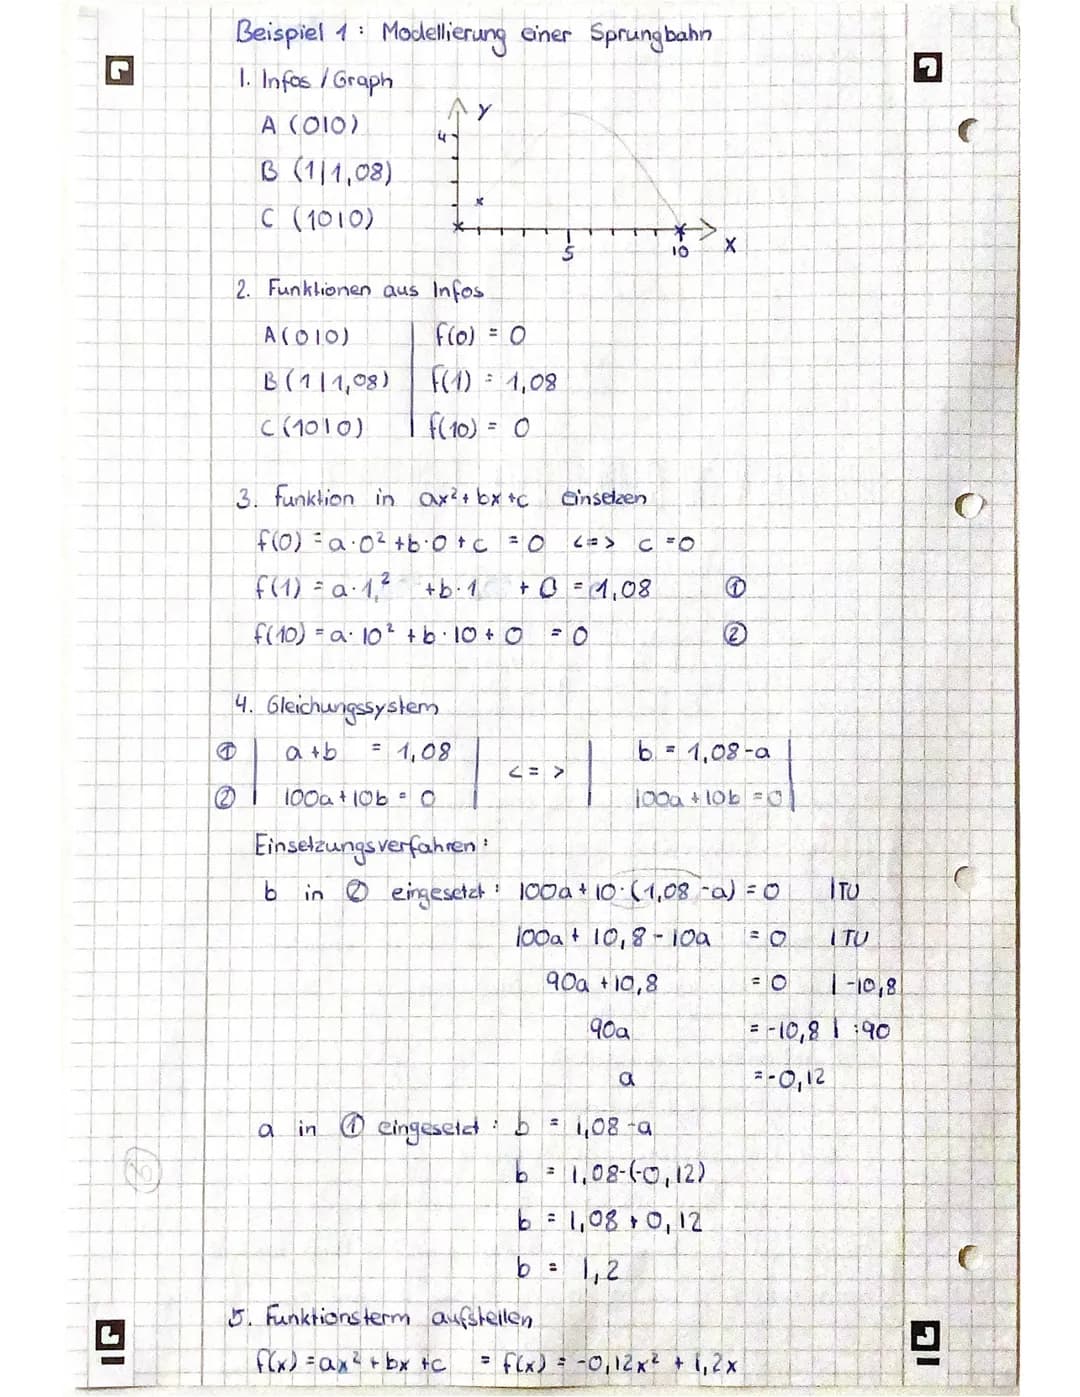 Beispiel 1 : Modellierung einer Sprungbahn
1. Infos / Graph
A (0|0)
B (1|1,08)
C (10|0)
y
4
5
10
x
2. Funktionen aus Infos
A(0|0) | f(0) = 0
B(1|1,08) | f(1) = 1,08
C(10|0) | f(10) = 0
3. Funktion in ax²+bx+c einsetzen
f(0) = a·0² + b·0 + c = 0 <=> c = 0
f(1) = a·1² + b·1 + 0 = 1,08 ①
f(10) = a·10² + b·10 + 0 = 0 ②
4. Gleichungssystem
① | a+b = 1,08 | <=> | b = 1,08-a |
② | 100a+10b = 0 | | 100a+10b = 0 |
Einsetzungsverfahren:
b in ② eingesetzt: 100a + 10·(1,08-a) = 0 |TU
100a + 10,8 - 10a = 0 |TU
90a + 10,8 = 0 | -10,8
90a = -10,8 | :90
a = -0,12
a in ① eingesetzt: b = 1,08-a
b = 1,08-(-0,12)
b = 1,08 + 0,12
b = 1,2
5. Funktionsterm aufstellen
f(x) = ax² + bx + c = f(x) = -0,12x² + 1,2x